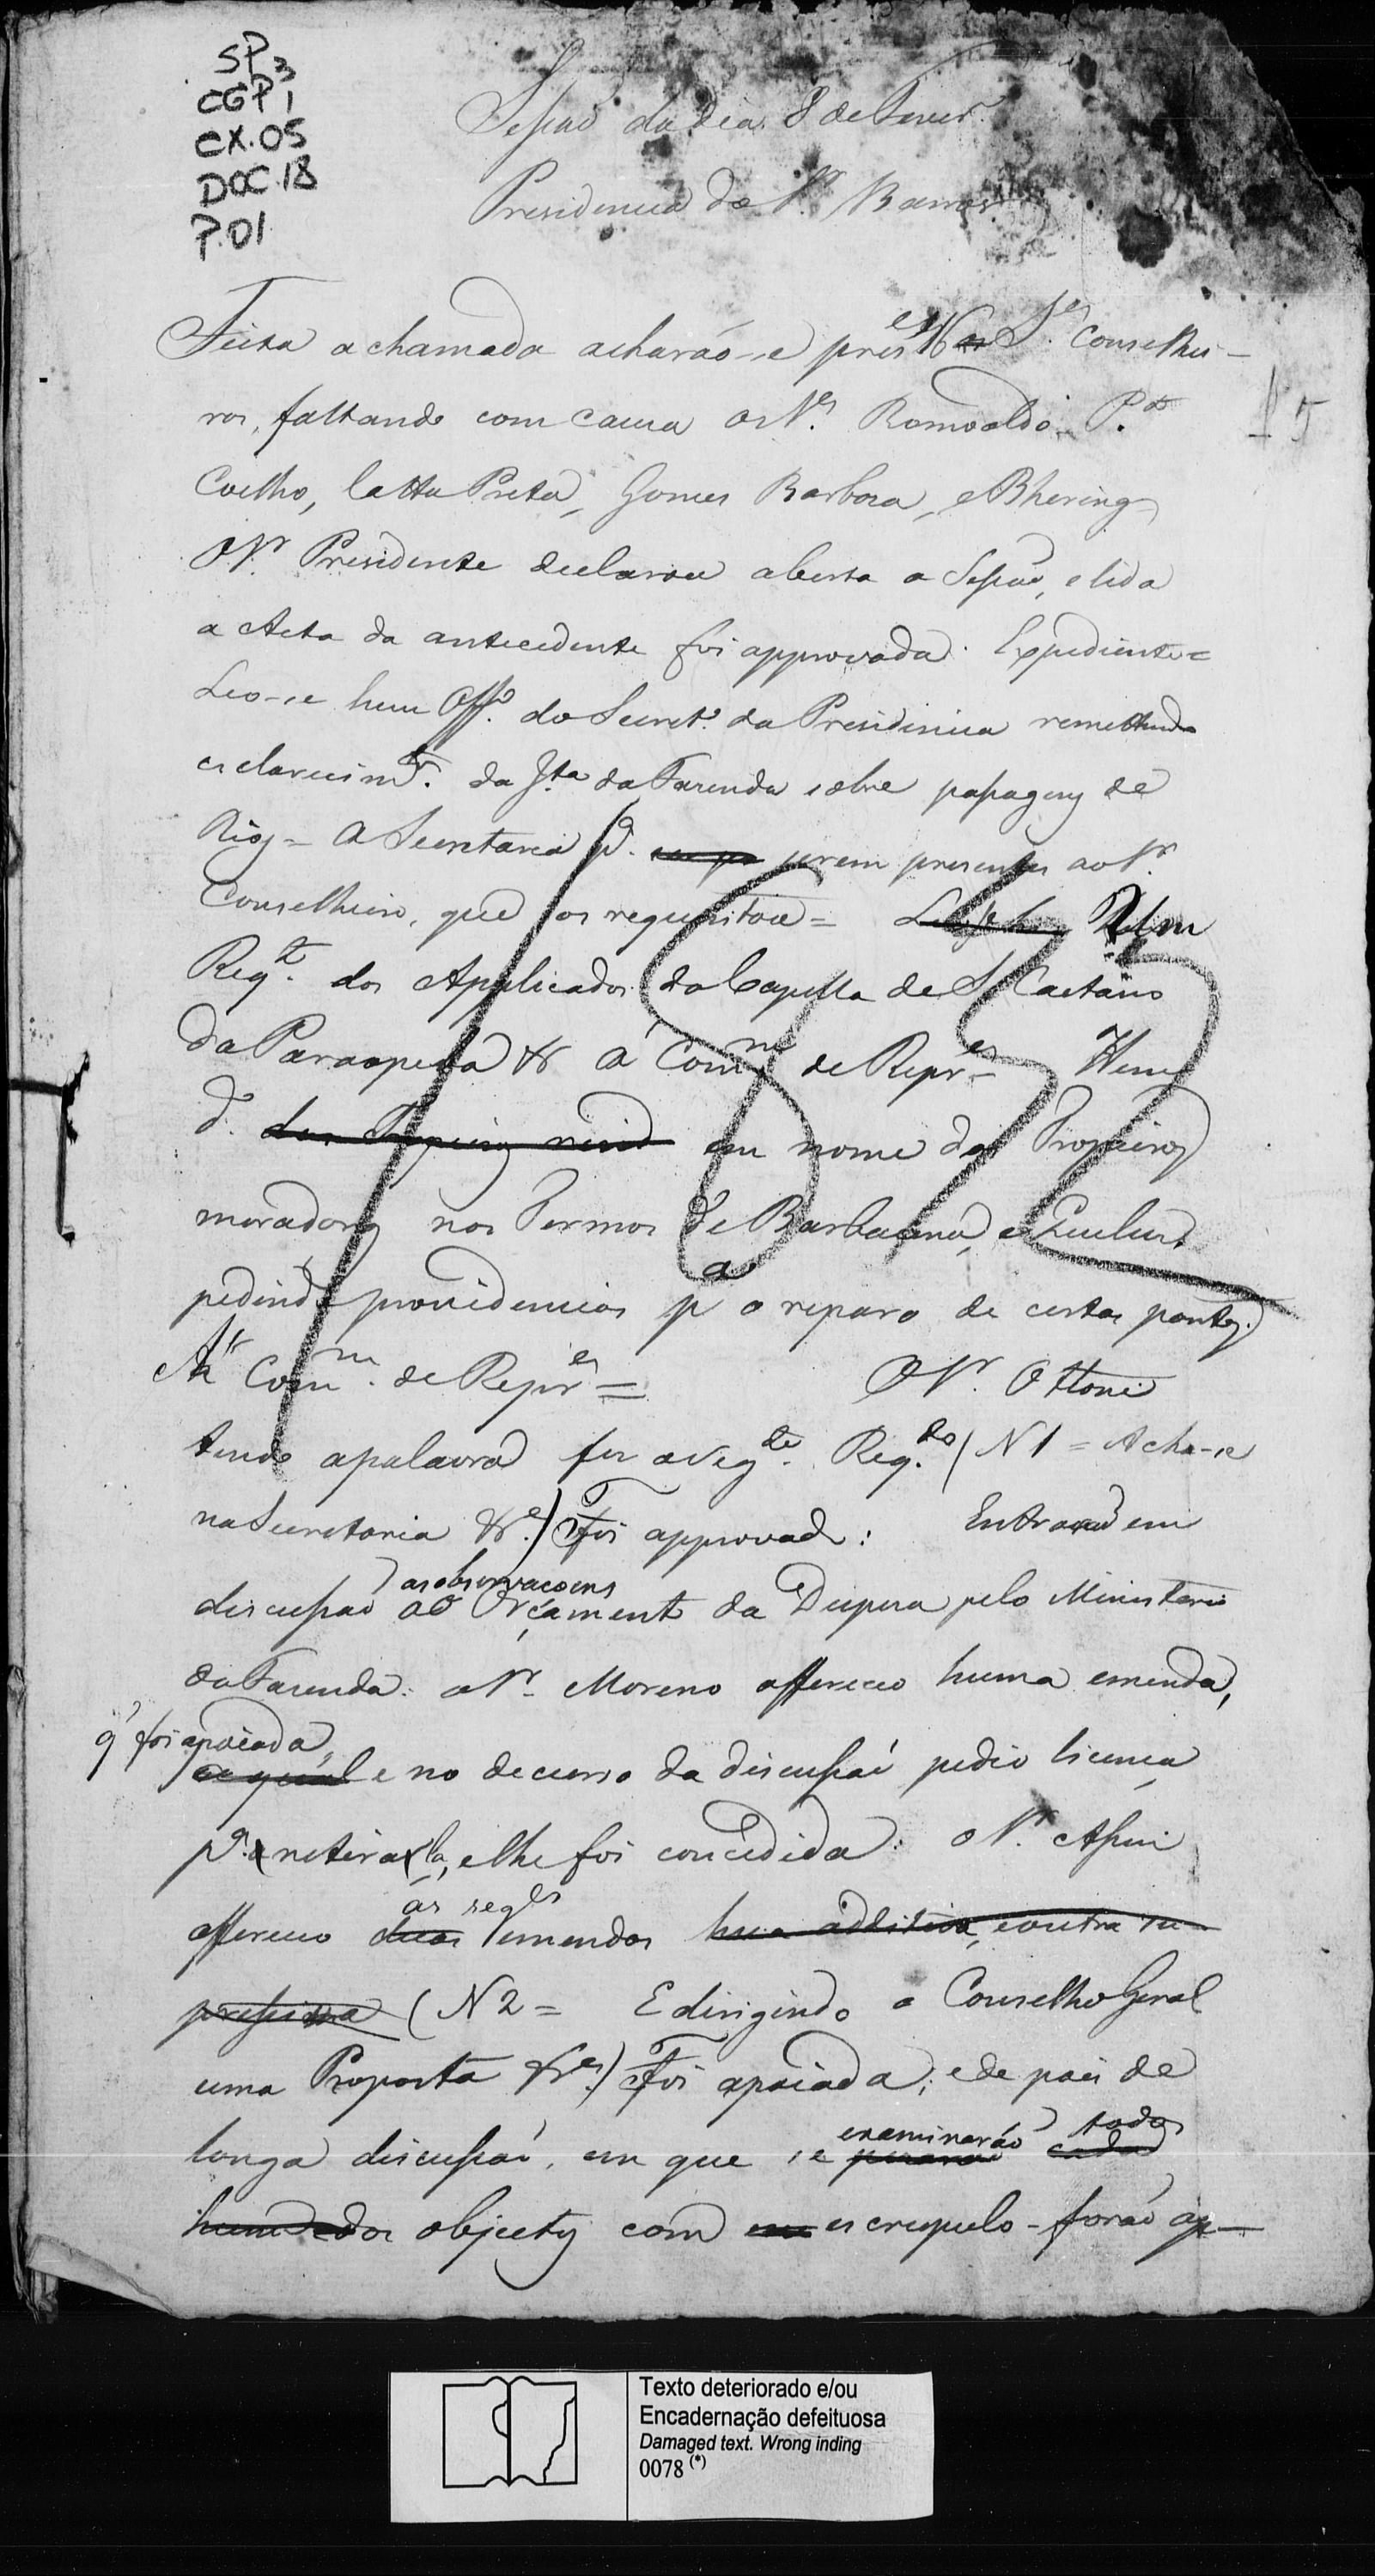 SP 3
CGP 1
CX. 05
DOC. 18
P. 01
Sessaõ do dia 8 de Fever.º
Presidencia do Sr. Barros
Feita a chamada acharaõ-se pres.es 16 Srs. Conselhei-
ros, faltando com causa os Srs. Romoaldo, P.to
Coelho, Motta Preta, Gomes Barbosa, e Bhering
O Sr. Presidente declarou aberta a Sessaõ, e lida
a Acta da antecedente foi approvada. Expediente =
Leo-se hum Off.º do Secret.º da Presidencia remettendo
esclarecim.tos da J.ta da Fazenda sobre passagens de
Rios = A Secretaria p.a serem presentes ao Sr.
Conselheiro, que os requisitou = Hum
Req.to dos Applicados da Capella de S. Caetano
da Paraopeba &c Á Com.m de Repr.es = Hum
d.º dos Tropeiros resid em nome dos Tropeiros
moradores nos Termos de Barbacena, e Queluz
pedindo providencias p.a o reparo de certas pontes.
Á Com.m de Repr.es = O Sr. Ottoni
tendo a palavra fez o seg.te Req.to (N 1 = Acha-se
na Secretaria &c.) Foi approvado: Entraraõ em
discussaõ as observaçoens ao Orçamento da Despesa pelo Ministerio
da Fazenda: o Sr. Moreno offereceo huma emenda,
q' foi apoiada, a qual e no decurso da discussaõ pedio licença
p.a retira-la, e lhe foi concedida: o Sr. Assis
offereceo duas as seg.es emendas hua additiva, e outra su-
pressiva (N 2 = E dirigindo o Conselho Geral
uma Proposta &c.) Foi apoiada; e depois de
longa discussaõ, em que se examinaraõ todos
hum dos objectos com escrupulo - foraõ ap-
15
1833
Texto deteriorado e/ou
Encadernação defeituosa
Damaged text. Wrong inding
0078 (*)